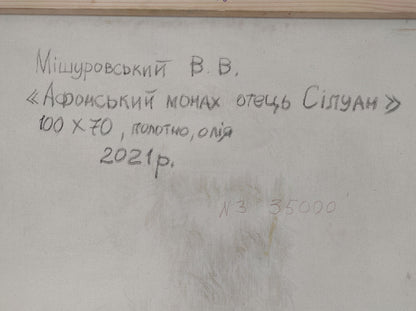 Мішуровський В. В.
«Афонський монах отець Сілуан»
100 х 70, полотно, олія
2021р.
№3 35000